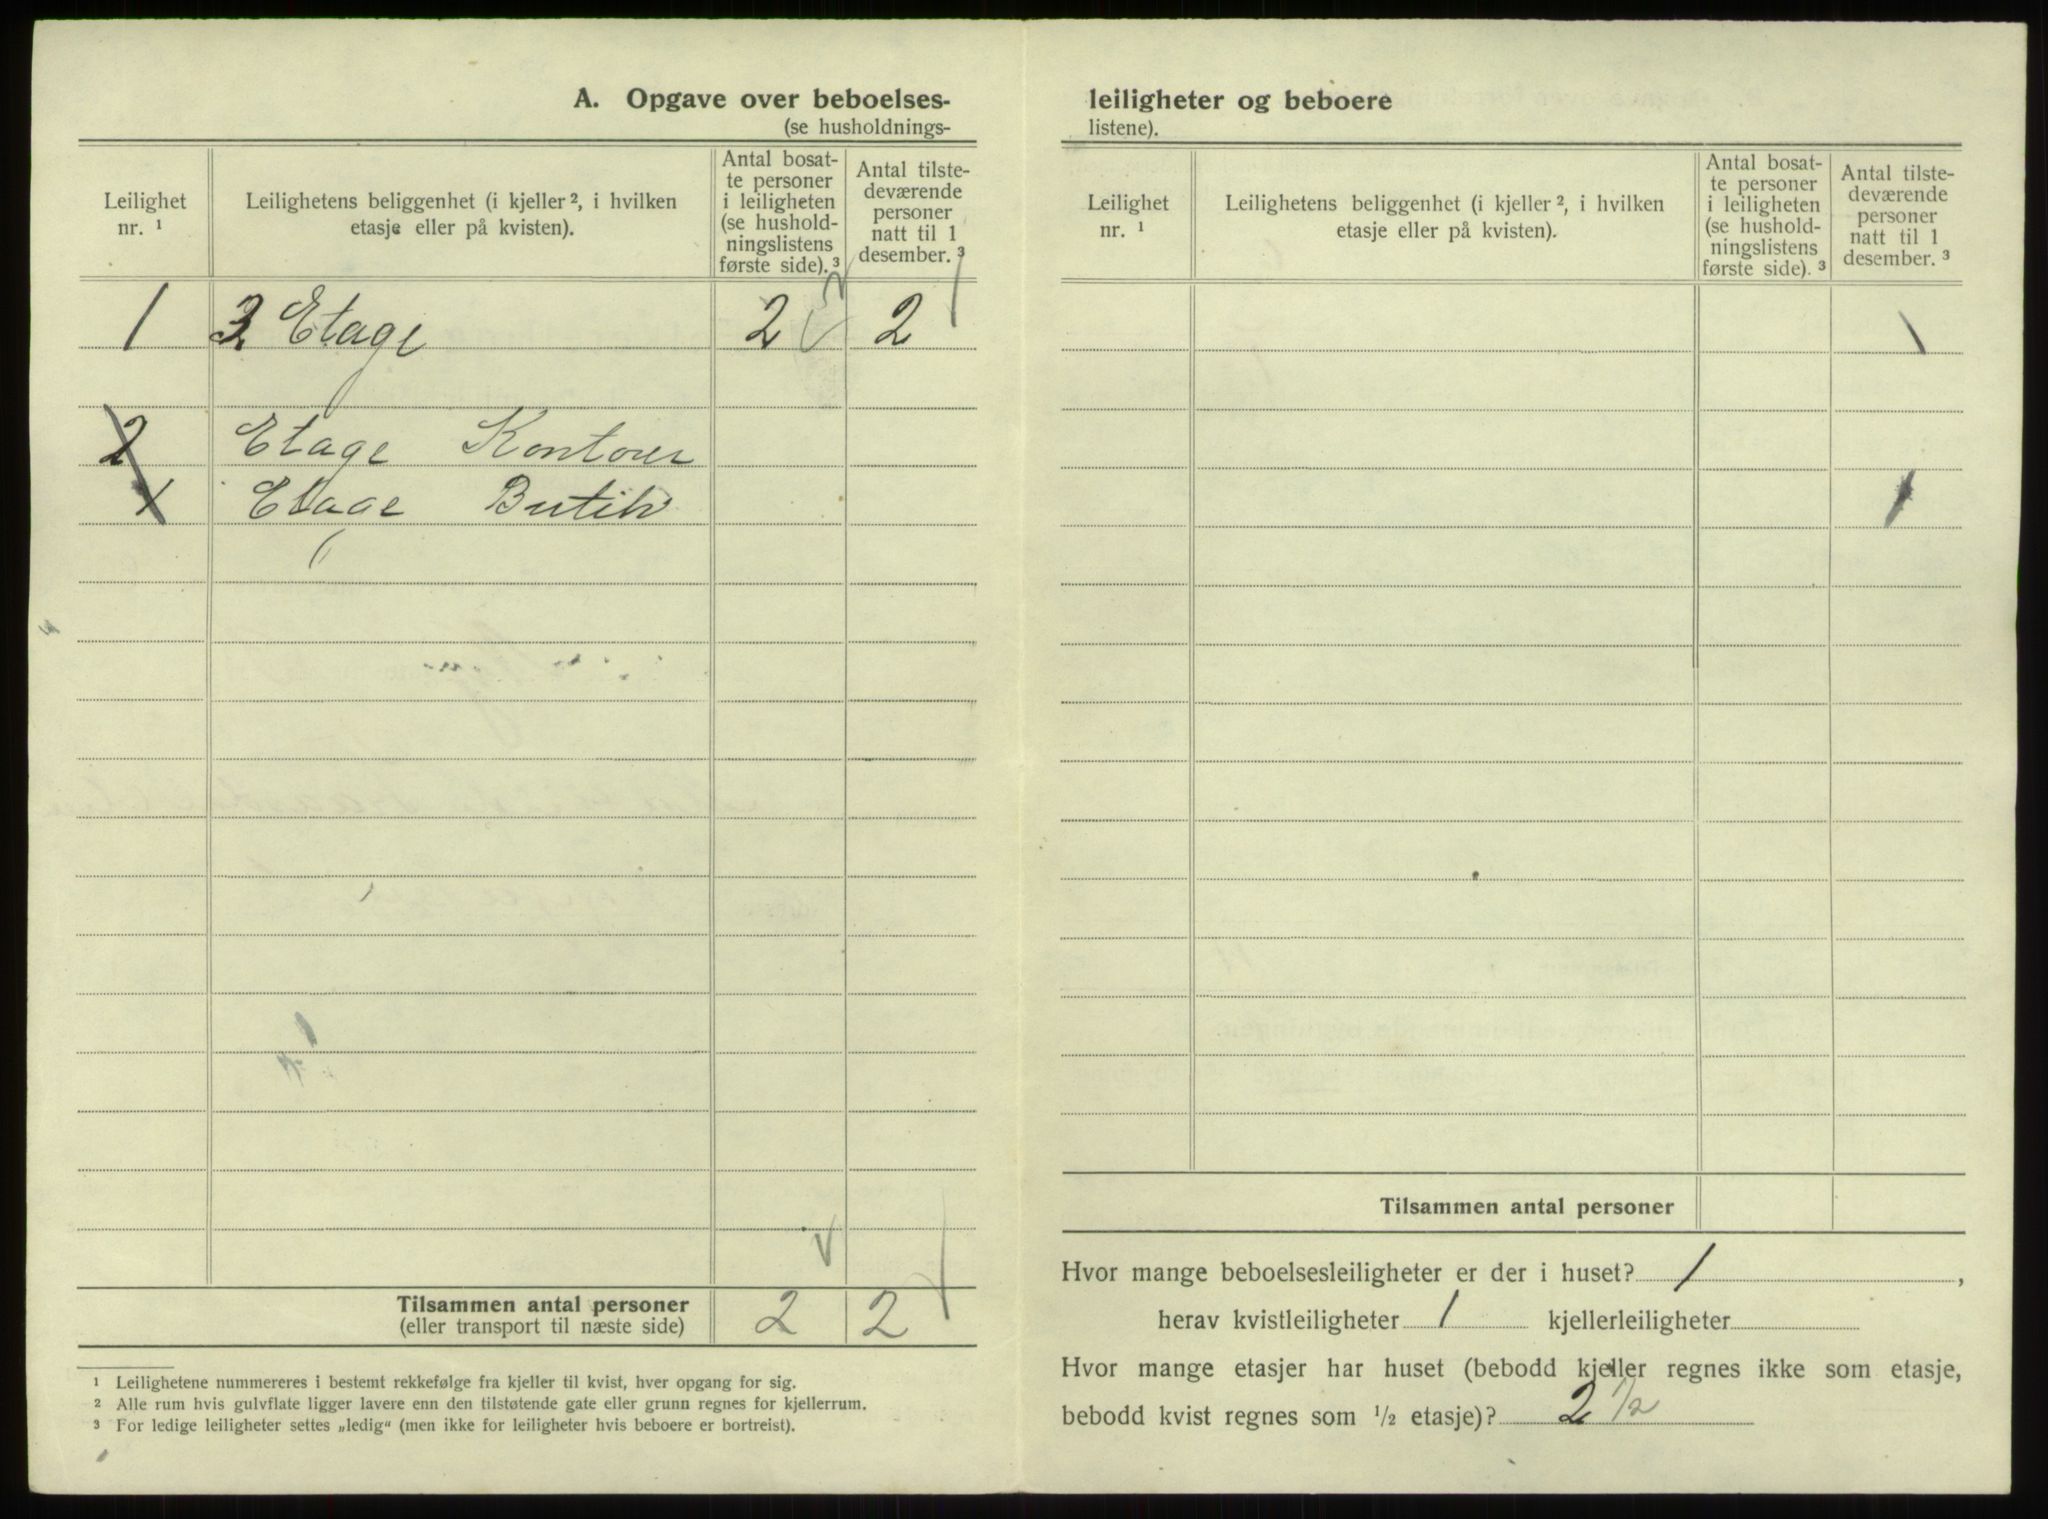 A. Opgave over beboelses-
(se husholdnings-
Leilighet
nr. 1
Leilighetens beliggenhet (i kjeller 2, i hvilken
etasje eller på kvisten).
Antal bosat-
te personer
i leiligheten
(se hushold-
ningslistens
første side). 3
Antal tilste-
deværende
personer
natt til 1
desember. 3
1 3 Etage 2 2
2 Etage Kontorer
1 Etage Butik
Tilsammen antal personer
(eller transport til næste side)
2 2
1 Leilighetene nummereres i bestemt rekkefølge fra kjeller til kvist, hver opgang for sig.
2 Alle rum hvis gulvflate ligger lavere enn den tilstøtende gate eller grunn regnes for kjellerrum.
3 For ledige leiligheter settes „ledig“ (men ikke for leiligheter hvis beboere er bortreist).
leiligheter og beboere
listene).
Leilighet
nr. 1
Leilighetens beliggenhet (i kjeller 2, i hvilken
etasje eller på kvisten).
Antal bosat-
te personer
i leiligheten
(se hushold-
ningslistens
første side). 3
Antal tilste-
deværende
personer
natt til 1
desember. 3
Tilsammen antal personer
Hvor mange beboelsesleiligheter er der i huset? 1,
herav kvistleiligheter 1 kjellerleiligheter
Hvor mange etasjer har huset (bebodd kjeller regnes ikke som etasje,
bebodd kvist regnes som 1/2 etasje)? 2 1/2